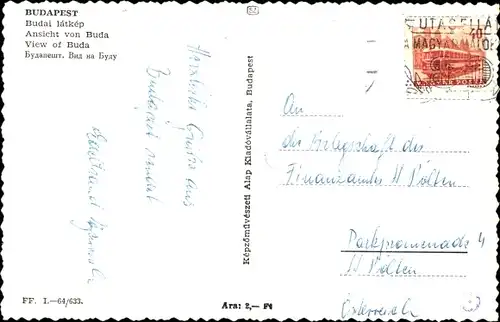 BUDAPEST
Budai látkép
Ansicht von Buda
View of Buda
Будапешт. Вид на Буду
Herzliche Grüße aus
Budapest sendet
Képzőművészeti Alap Kiadóvállalata, Budapest
UTASELLÁ
MAGYAR
40
An
die Belegschaft des
Finanzamtes St Pölten
Parkpromenade 4
St Pölten
Österreich
FF. I.—64/633.
Ara: 2,— Ft